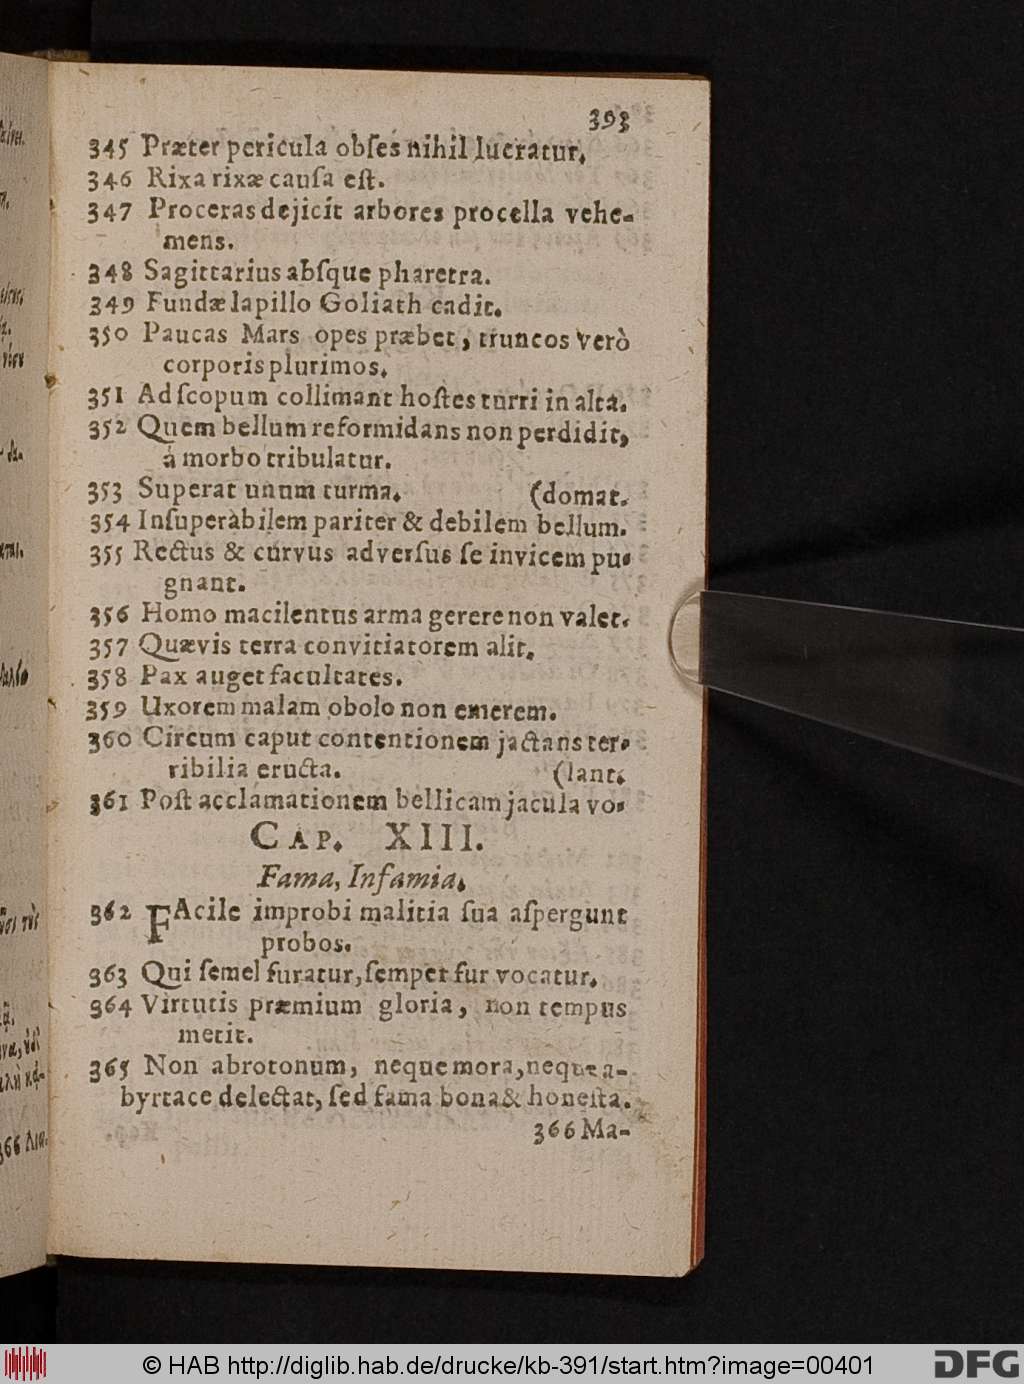 393
345 Præter pericula obſes nihil lucratur.
346 Rixa rixæ cauſa eſt.
347 Proceras dejicit arbores procella vehe-
mens.
348 Sagittarius abſque pharetra.
349 Fundæ lapillo Goliath cadit.
350 Paucas Mars opes præbet, truncos verò
corporis plurimos.
351 Ad ſcopum collimant hoſtes turri in alta.
352 Quem bellum reformidans non perdidit,
á morbo tribulatur.
353 Superat unum turma. (domat.
354 Inſuperàbilem pariter & debilem bellum.
355 Rectus & curvus adverſus ſe invicem pu-
gnant.
356 Homo macilentus arma gerere non valet.
357 Quævis terra convitiatorem alit.
358 Pax auget facultates.
359 Uxorem malam obolo non emerem.
360 Circum caput contentionem jactans ter-
ribilia eructa. (lant.
361 Poſt acclamationem bellicam jacula vo-
CAP. XIII.
Fama, Infamia.
362 FAcile improbi malitia ſua aſpergunt
probos.
363 Qui ſemel furatur, ſemper fur vocatur.
364 Virtutis præmium gloria, non tempus
metit.
365 Non abrotonum, neque mora, neque a-
byrtace delectat, ſed fama bona & honeſta.
366 Ma-
© HAB http://diglib.hab.de/drucke/kb-391/start.htm?image=00401
DFG